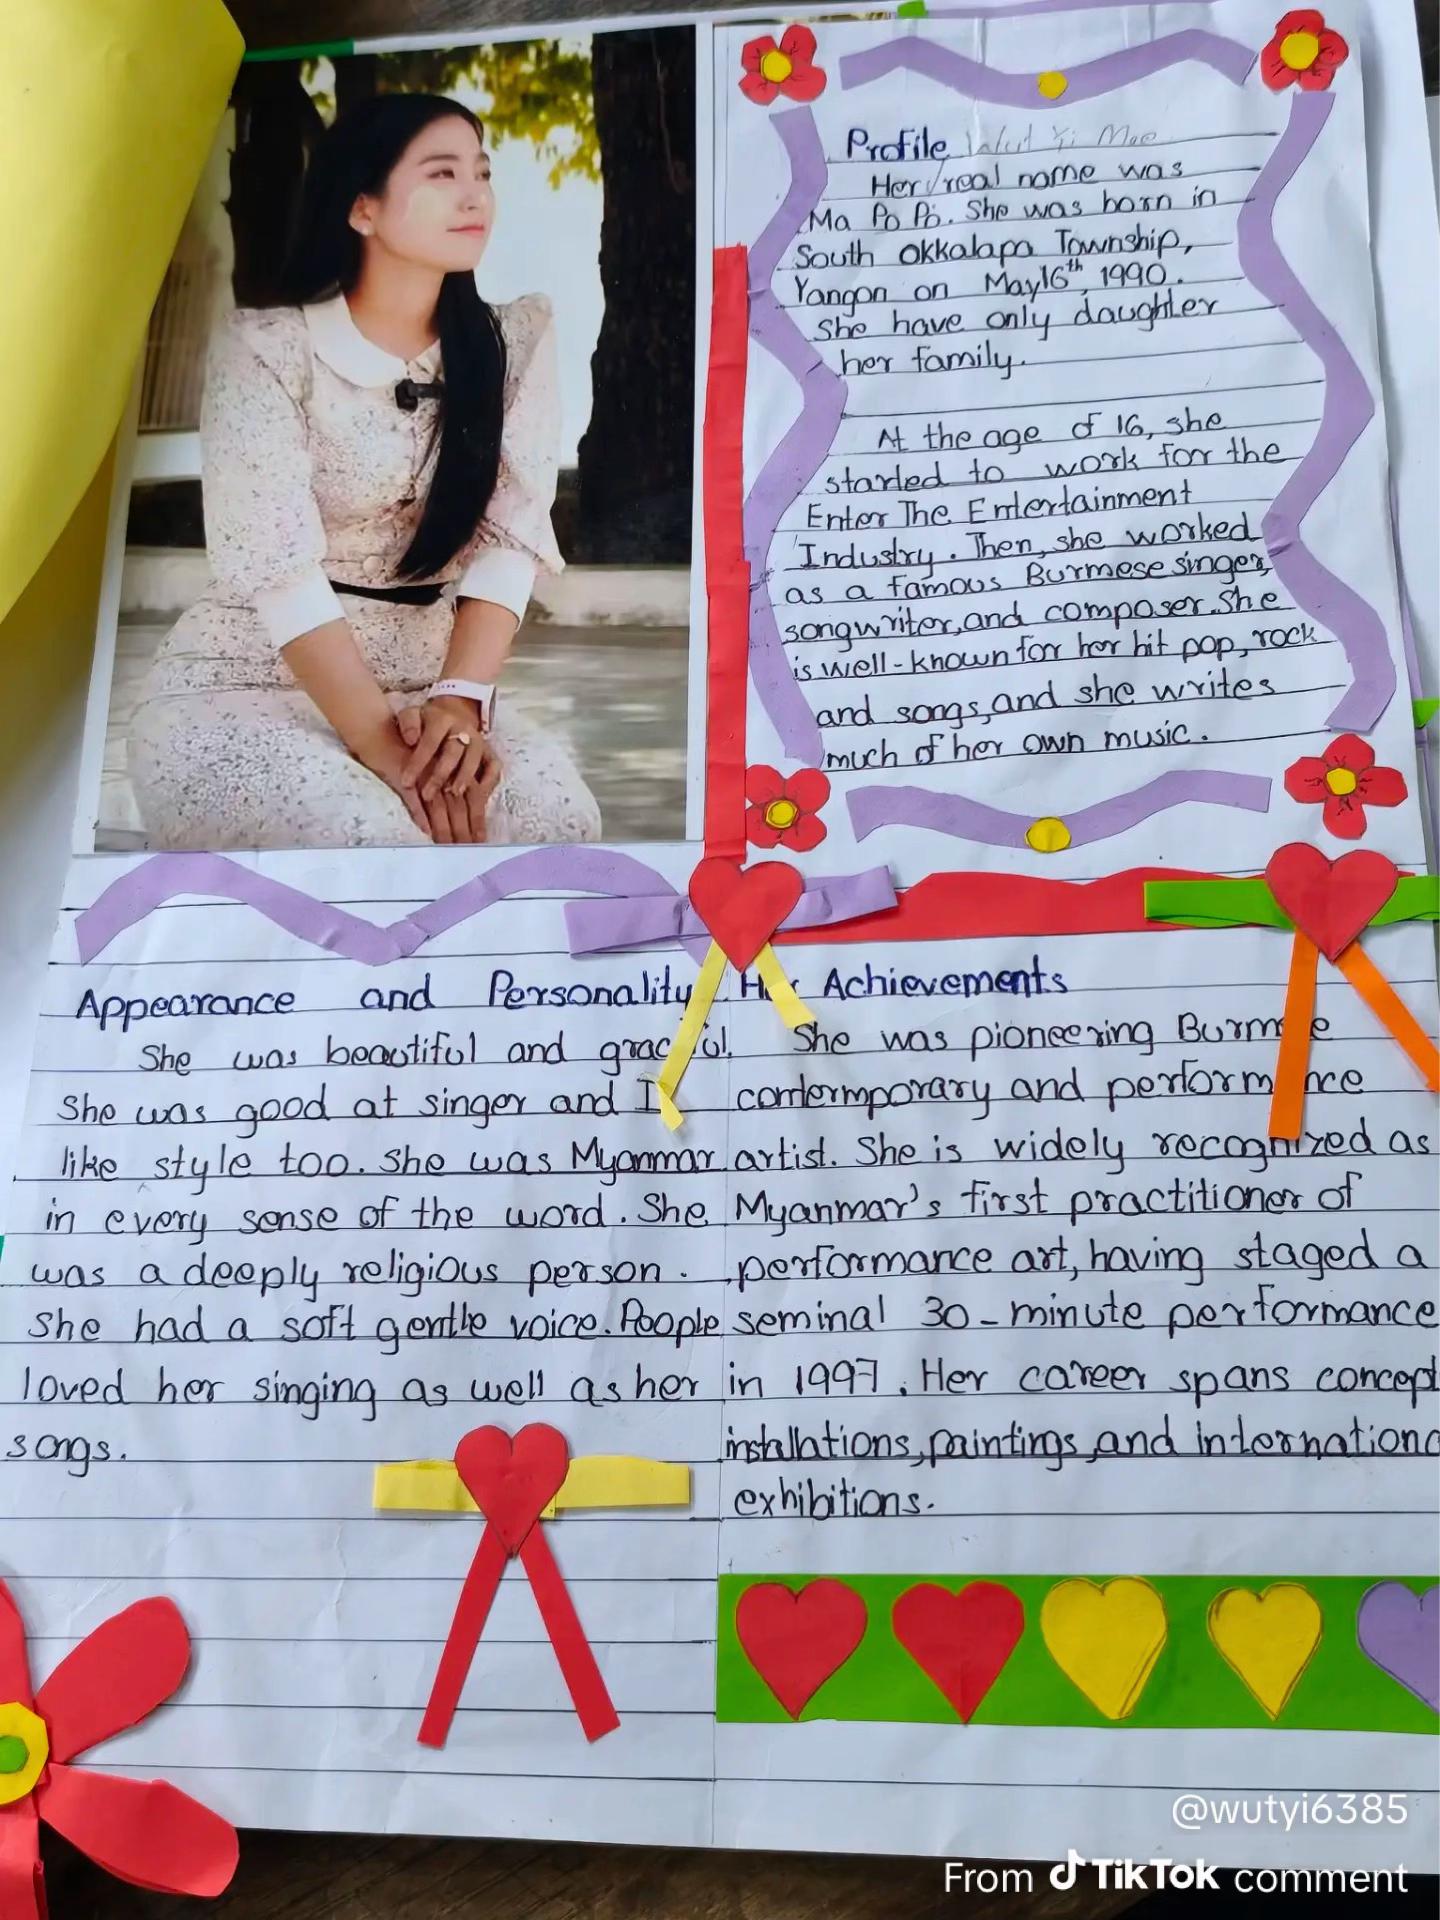 Profile Wut Yi Moe
Her real name was
Ma Po Po. She was born in
South Okkalapa Township,
Yangon on May16th, 1990.
she have only daughter
her family.
At the age of 16, she
started to work for the
Enter The Entertainment
Industry. Then, she worked
as a famous Burmese singer,
songwriter, and composer. She
is well-known for her hit pop, rock
and songs, and she writes
much of her own music.
Appearance and Personality
She was beautiful and
she was good at singer and I
like style too. She was Myanmar
in every sense of the word. She
was a deeply religious person.
She had a soft gentle voice. People
loved her singing as well as her
songs.
Achievements
She was pioneering
contermporary and
artist. She is widely recognized as
Myanmar's first practitioner of
performance art, having staged a
seminal 30-minute performance
in 1997. Her career spans concept
installations, paintings, and internationa
exhibitions.
@wutyi6385
From TikTok comment